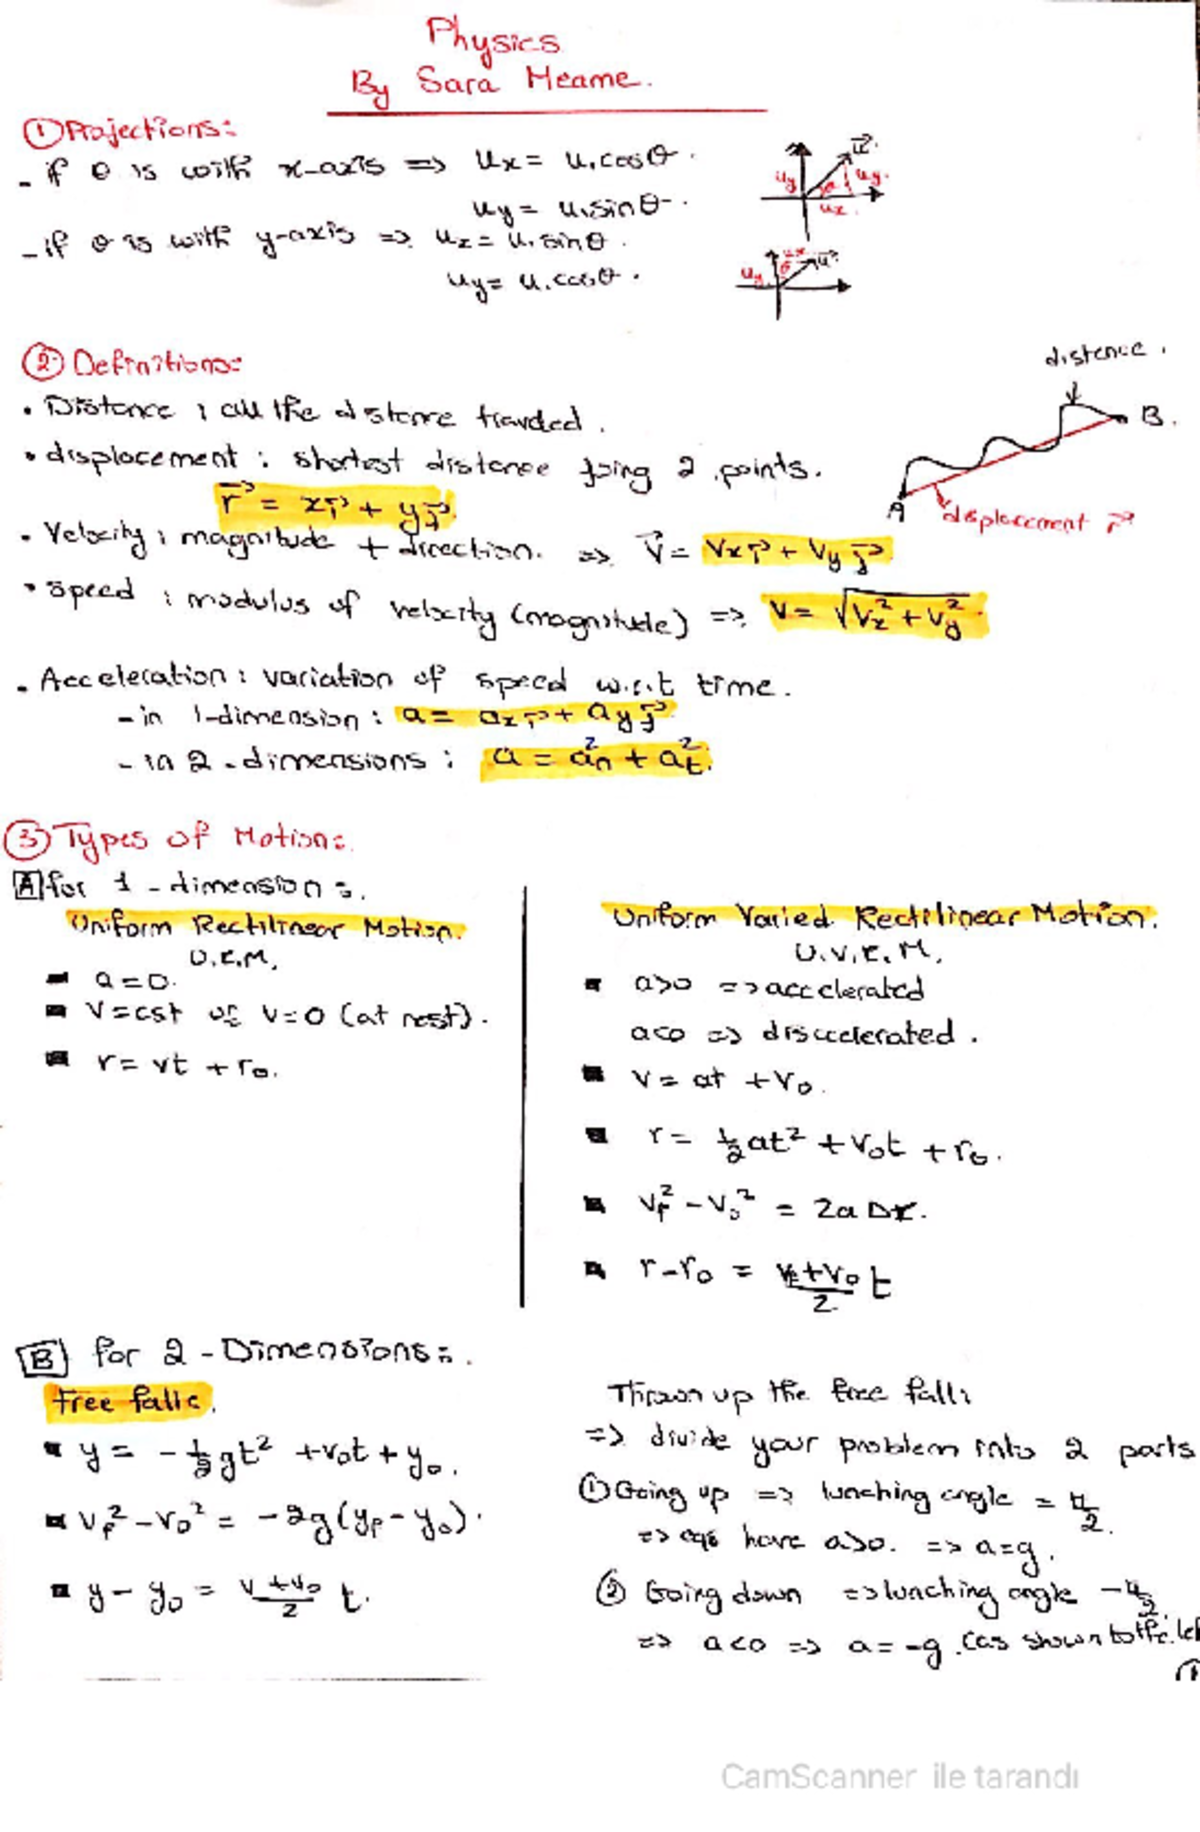 Physics
By Sara Meame.
① Projections:
- if θ is with x-axis => ux = u.cosθ.
uy = u.sinθ.
- if θ is with y-axis => ux = u.sinθ.
uy = u.cosθ.
u
uy
θ
uy.
ux.
ux
uy
θ
u
② Definitions:
distence.
• Distance : all the distance traveled.
• displacement : shortest distance joing 2 points.
B.
r = xi + yj
A
displacement r
• Velocity : magnitude + direction. => V = Vxi + Vyj
• speed : modulus of velocity (magnitude) => V = √Vx² + Vy²
• Acceleration : variation of speed w.r.t time.
- in 1-dimension : a = axi + ayj
- in 2-dimensions : a = an² + at².
③ Types of Motion:
A for 1-dimension:.
Uniform Rectilinear Motion.
U.R.M.
a=0.
V=cst or V=0 (at rest).
r = vt + r₀.
Uniform Varied Rectilinear Motion.
U.V.R.M.
a>0 => accelerated
a<0 => disccelerated.
V = at + V₀.
r = ½at² + V₀t + r₀.
Vf² - V₀² = 2a Δr.
r - r₀ = (Vf + V₀)/2 t
B for 2-Dimensions:.
Free fall:.
y = -½gt² + v₀t + y₀.
Vf² - V₀² = -2g(yf - y₀).
y - y₀ = (v + v₀)/2 t.
Thrown up the free fall:
=> divide your problem into 2 parts
① Going up => lunching angle = π/2.
=> eqs have a>0. => a=g.
② Going down => lunching angle -π/2.
=> a<0 => a = -g. (as shown to the
CamScanner ile tarandı